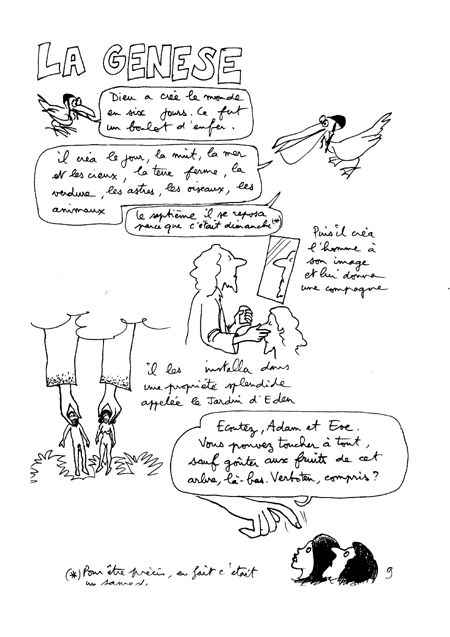 LA GENESE
Dieu a créé le monde
en six jours. Ce fut
un boulot d'enfer.
il créa le jour, la nuit, la mer
et les cieux, la terre ferme, la
verdure, les astres, les oiseaux, les
animaux
Le septième il se reposa
parce que c'était dimanche (*)
Puis il créa
l'homme à
son image
et lui donna
une compagne
il les installa dans
une propriété splendide
appelée le Jardin d'Eden
Ecoutez, Adam et Eve.
Vous pouvez toucher à tout,
sauf goûter aux fruits de cet
arbre, là-bas. Verboten, compris?
(*) Pour être précis, en fait c'était
un samedi.
9